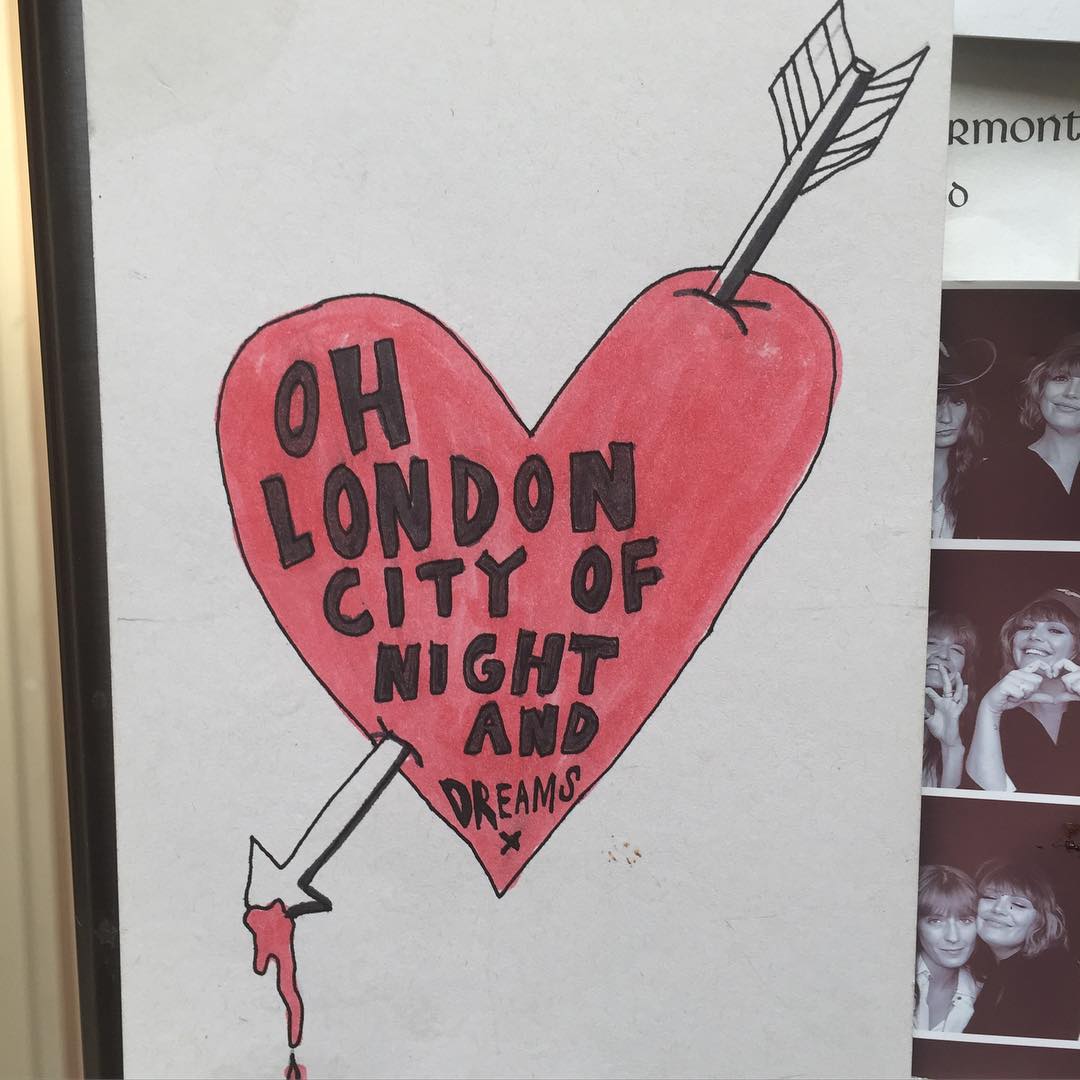 OH
LONDON
CITY OF
NIGHT
AND
DREAMS
x
RMONT
D